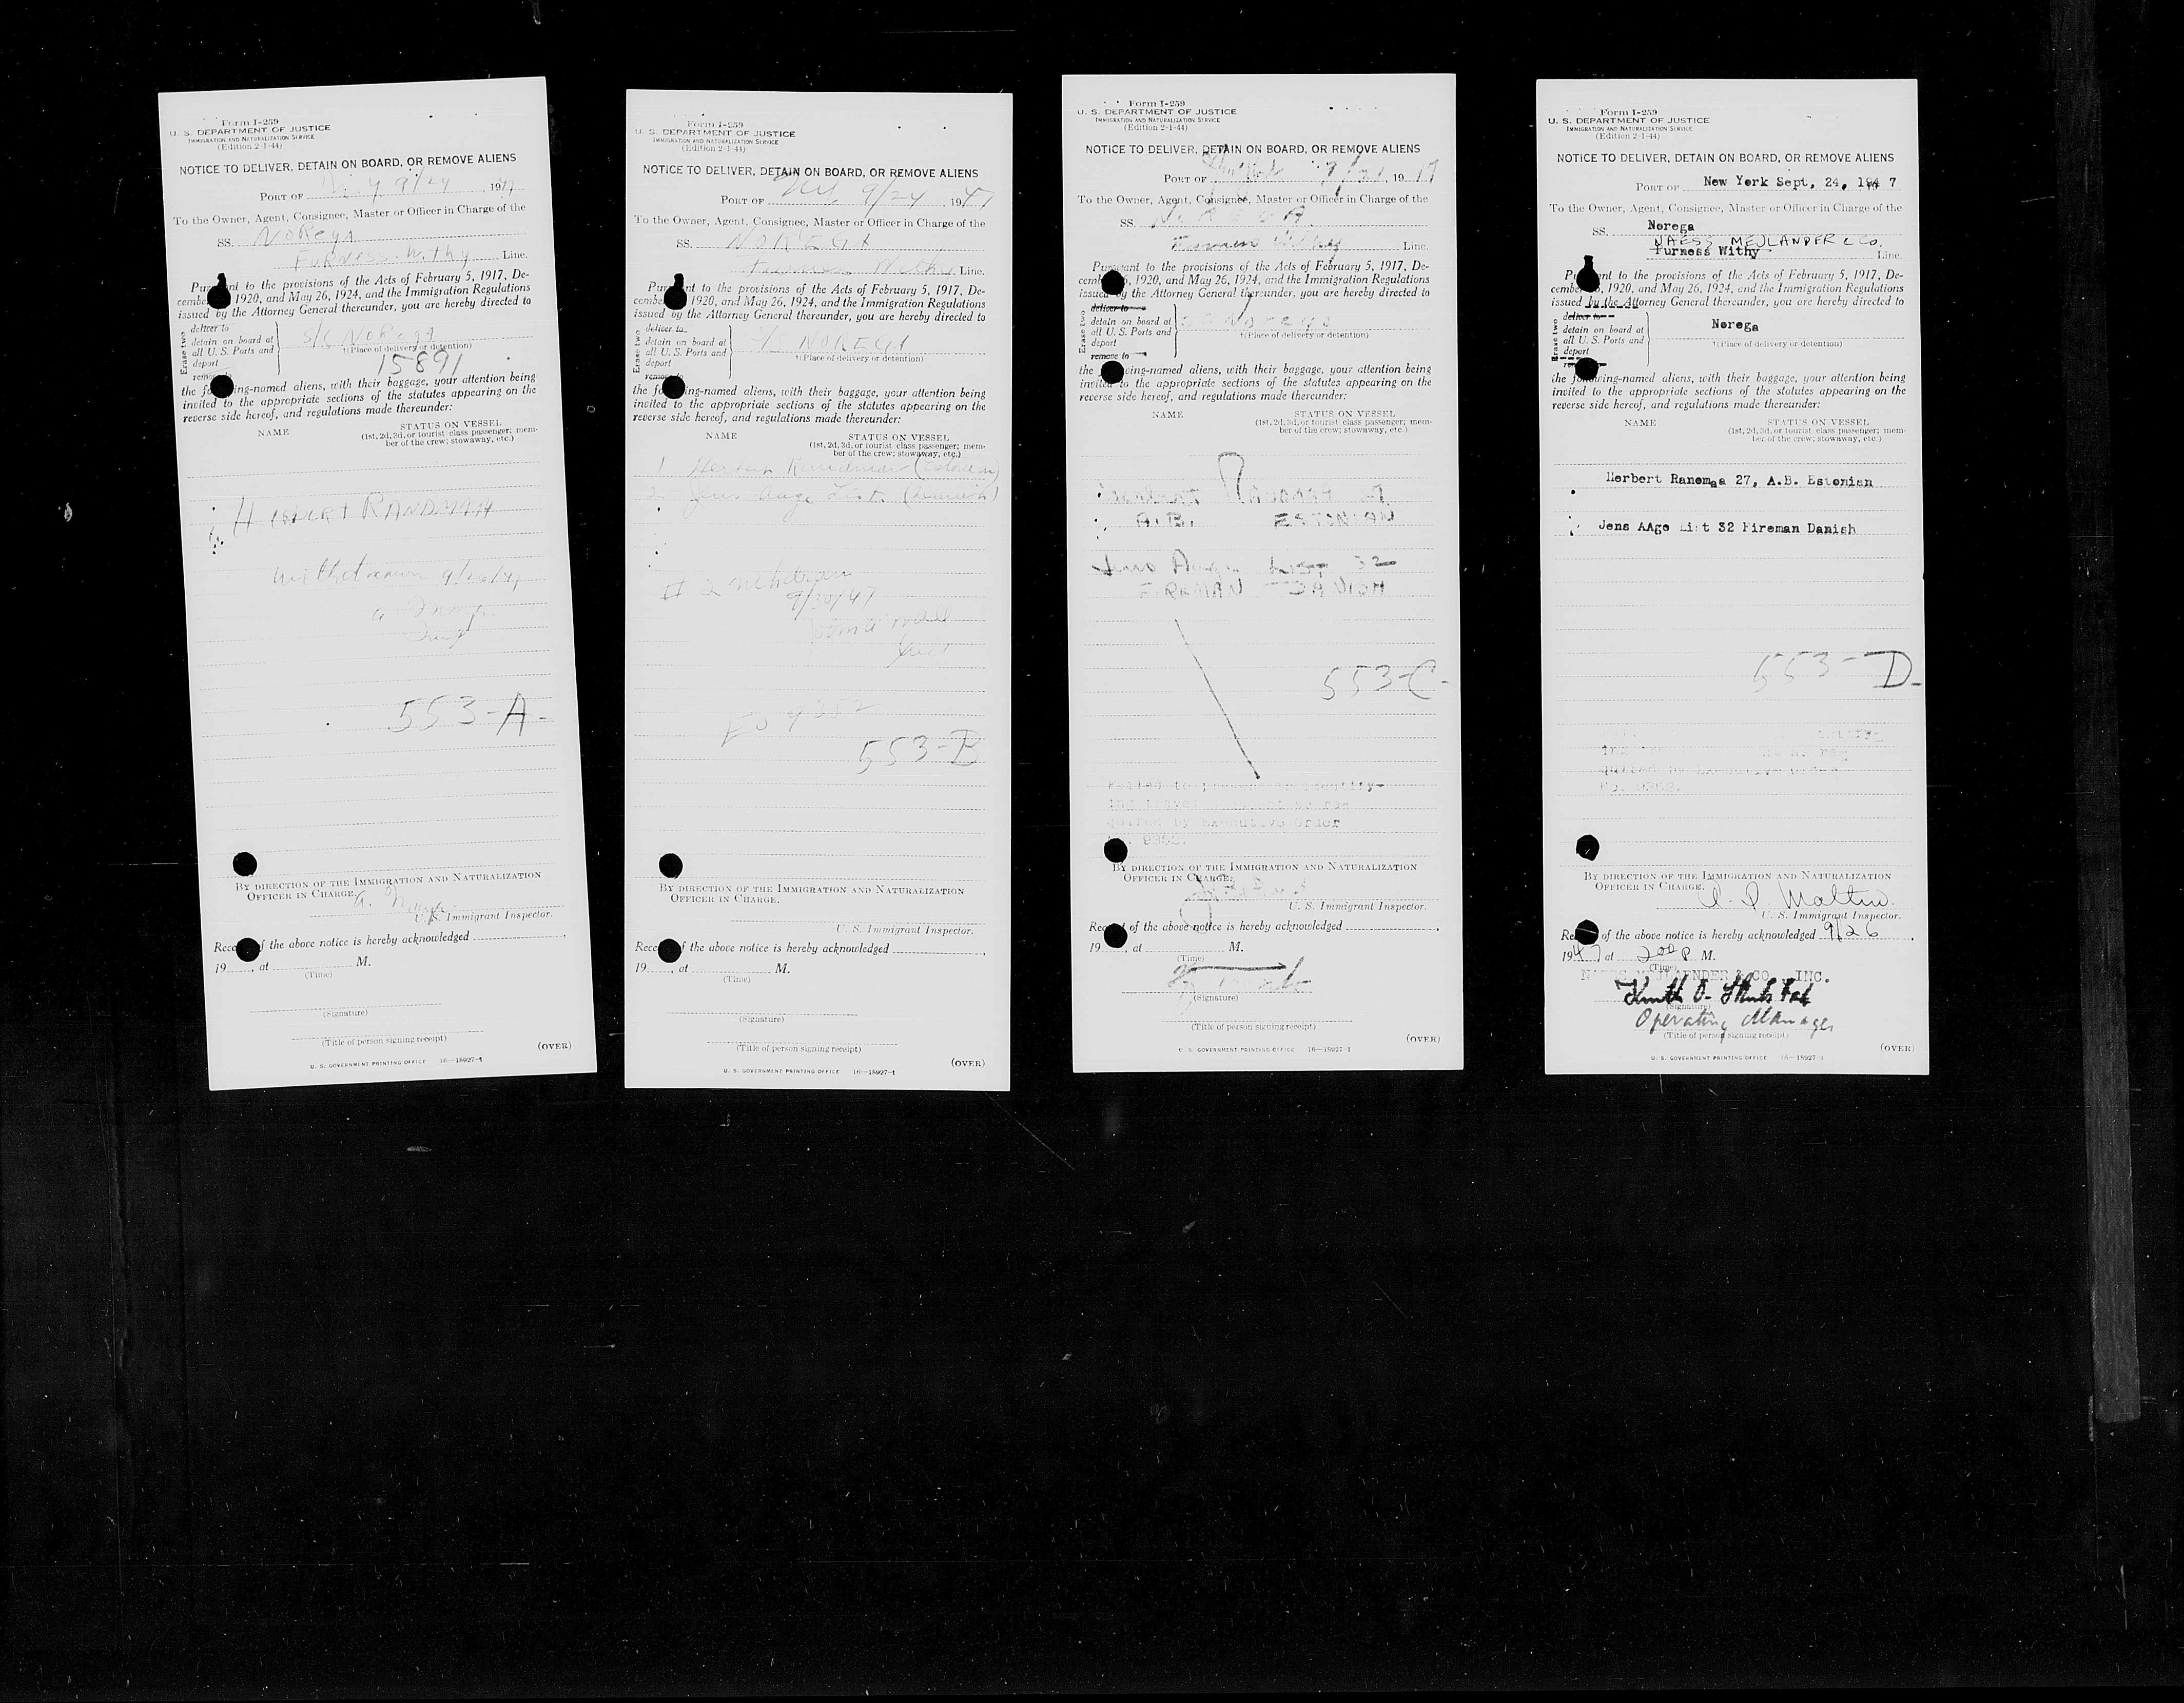 Form I-259
U. S. DEPARTMENT OF JUSTICE
IMMIGRATION AND NATURALIZATION SERVICE
(Edition 2-1-44)
NOTICE TO DELIVER, DETAIN ON BOARD, OR REMOVE ALIENS
PORT OF N.Y 9/24, 1947
To the Owner, Agent, Consignee, Master or Officer in Charge of the
SS. NOREGA
FURNESS. WITHY Line.
Pursuant to the provisions of the Acts of February 5, 1917, De-
cember 1920, and May 26, 1924, and the Immigration Regulations
issued by the Attorney General thereunder, you are hereby directed to
Erase two
deliver to
detain on board at
all U. S. Ports and
deport
remove to
S/S NOREGA
†(Place of delivery or detention)
15891
the following-named aliens, with their baggage, your attention being
invited to the appropriate sections of the statutes appearing on the
reverse side hereof, and regulations made thereunder:
NAME STATUS ON VESSEL
(1st, 2d, 3d, or tourist class passenger; mem-
ber of the crew; stowaway, etc.)
HERBERT RANDMAA
Withdrawn 9/26/47
553-A-
BY DIRECTION OF THE IMMIGRATION AND NATURALIZATION
OFFICER IN CHARGE.
U. S. Immigrant Inspector.
Receipt of the above notice is hereby acknowledged
19, at M.
(Time)
(Signature)
(Title of person signing receipt)
(OVER)
U. S. GOVERNMENT PRINTING OFFICE 16—18927-1
Form I-259
U. S. DEPARTMENT OF JUSTICE
IMMIGRATION AND NATURALIZATION SERVICE
(Edition 2-1-44)
NOTICE TO DELIVER, DETAIN ON BOARD, OR REMOVE ALIENS
PORT OF NY 9/24, 1947
To the Owner, Agent, Consignee, Master or Officer in Charge of the
SS. NOREGA
Furness Withy Line.
Pursuant to the provisions of the Acts of February 5, 1917, De-
cember 1920, and May 26, 1924, and the Immigration Regulations
issued by the Attorney General thereunder, you are hereby directed to
Erase two
deliver to
detain on board at
all U. S. Ports and
deport
remove to
S/S NOREGA
†(Place of delivery or detention)
the following-named aliens, with their baggage, your attention being
invited to the appropriate sections of the statutes appearing on the
reverse side hereof, and regulations made thereunder:
NAME STATUS ON VESSEL
(1st, 2d, 3d, or tourist class passenger; mem-
ber of the crew; stowaway, etc.)
1 Herbert Randmaa (Estonian)
2 Jens Aage List (Danish)
# 2 Withdrawn
9/30/47
EO 9352
553-B
BY DIRECTION OF THE IMMIGRATION AND NATURALIZATION
OFFICER IN CHARGE.
U. S. Immigrant Inspector.
Receipt of the above notice is hereby acknowledged
19, at M.
(Time)
(Signature)
(Title of person signing receipt)
(OVER)
U. S. GOVERNMENT PRINTING OFFICE 16—18927-1
Form I-259
U. S. DEPARTMENT OF JUSTICE
IMMIGRATION AND NATURALIZATION SERVICE
(Edition 2-1-44)
NOTICE TO DELIVER, DETAIN ON BOARD, OR REMOVE ALIENS
PORT OF New York 9/24, 1947
To the Owner, Agent, Consignee, Master or Officer in Charge of the
SS. NOREGA
Furness Withy Line.
Pursuant to the provisions of the Acts of February 5, 1917, De-
cember 5, 1920, and May 26, 1924, and the Immigration Regulations
issued by the Attorney General thereunder, you are hereby directed to
Erase two
deliver to
detain on board at
all U. S. Ports and
deport
remove to
SS Norega
†(Place of delivery or detention)
the following-named aliens, with their baggage, your attention being
invited to the appropriate sections of the statutes appearing on the
reverse side hereof, and regulations made thereunder:
NAME STATUS ON VESSEL
(1st, 2d, 3d, or tourist class passenger; mem-
ber of the crew; stowaway, etc.)
A.B. ESTONIAN
Jens Aage List 32
FIREMAN DANISH
553-C-
Failed to present identify-
ing travel document as re-
quired by Executive Order
No. 9352.
BY DIRECTION OF THE IMMIGRATION AND NATURALIZATION
OFFICER IN CHARGE.
U. S. Immigrant Inspector.
Receipt of the above notice is hereby acknowledged
19, at M.
(Time)
(Signature)
(Title of person signing receipt)
(OVER)
U. S. GOVERNMENT PRINTING OFFICE 16—18927-1
Form I-259
U. S. DEPARTMENT OF JUSTICE
IMMIGRATION AND NATURALIZATION SERVICE
(Edition 2-1-44)
NOTICE TO DELIVER, DETAIN ON BOARD, OR REMOVE ALIENS
PORT OF New York Sept, 24, 1947
To the Owner, Agent, Consignee, Master or Officer in Charge of the
SS. Norega
NAESS MEJLANDER & Co.
Furness Withy Line.
Pursuant to the provisions of the Acts of February 5, 1917, De-
cember 5, 1920, and May 26, 1924, and the Immigration Regulations
issued by the Attorney General thereunder, you are hereby directed to
Erase two
deliver to
detain on board at
all U. S. Ports and
deport
remove to
Norega
†(Place of delivery or detention)
the following-named aliens, with their baggage, your attention being
invited to the appropriate sections of the statutes appearing on the
reverse side hereof, and regulations made thereunder:
NAME STATUS ON VESSEL
(1st, 2d, 3d, or tourist class passenger; mem-
ber of the crew; stowaway, etc.)
Herbert Ranomaa 27, A.B. Estonian
Jens AAge List 32 Fireman Danish
553-D-
quired by Executive Order
No. 9352.
BY DIRECTION OF THE IMMIGRATION AND NATURALIZATION
OFFICER IN CHARGE.
U. S. Immigrant Inspector.
Receipt of the above notice is hereby acknowledged 9/26,
1947 at 2:00 P M.
(Time)
NAESS MEJLAENDER & CO., INC.
(Signature)
Operating Manager
(Title of person signing receipt)
(OVER)
U. S. GOVERNMENT PRINTING OFFICE 16—18927-1